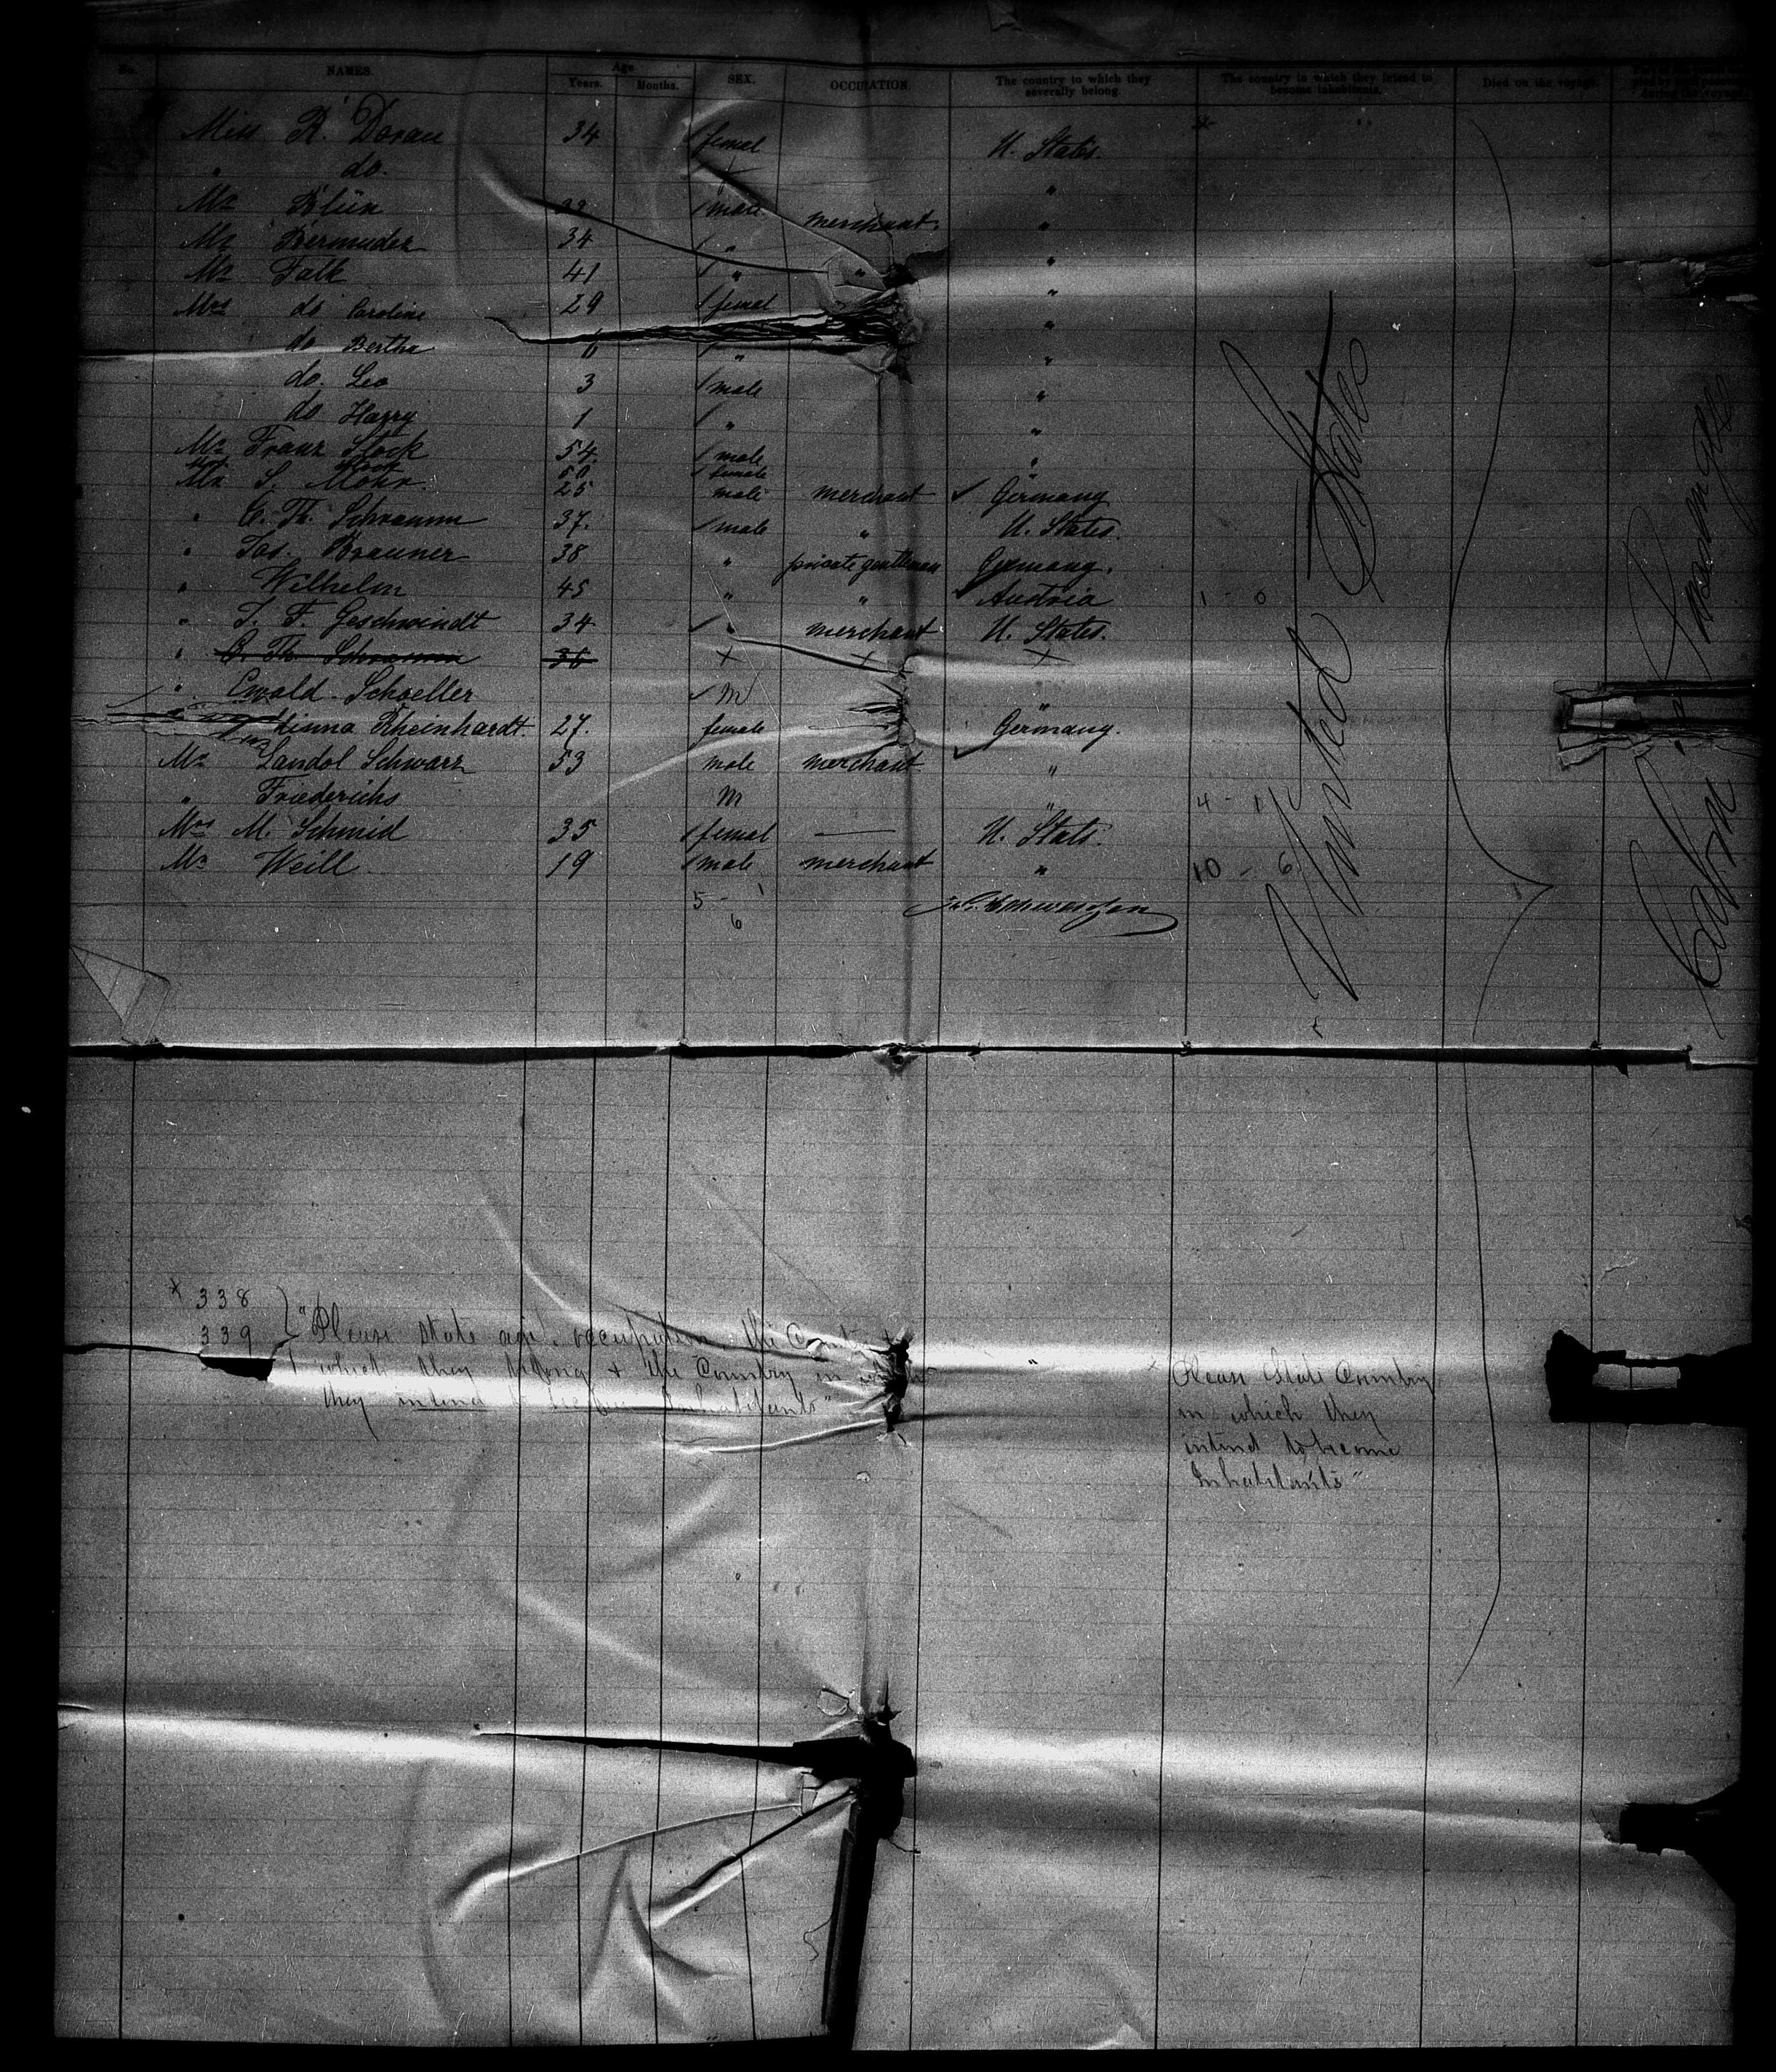 No. NAMES. Age Years. Months. SEX. OCCUPATION. The country to which they severally belong. The country in which they intend to become inhabitants. Died on the voyage. during the voyage
Miss R. Doran 34 femal U. States.
" do. "
Mr Klün male merchant. "
Mr Bermudez 34 " "
Mr Falk 41 " " "
Mrs do Caroline 29 femal "
do Bertha 6 " "
do. Leo 3 male "
do Harry 1 " "
Mr Franz Stock 54. male "
50 female
Mr S. Mohr. 25 male merchant Germany
" C. Th. Schramm 37. male " U. States.
" Jos. Brauner 38 " private gentleman Germany.
" Wilhelm 45 " " Austria 1 - 0
" J. F. Geschwindt 34 " merchant U. States.
" C. Th. Schramm 36 x x x
" Ewald Schoeller M "
Minna Rheinhardt. 27. female Germany.
Mr Landol Schwarz 53 male merchant. "
" Friederichs M " 4 - 1
Mrs M. Schmid 35 femal — U. Stats.
Mr Weill. 19 male merchant " 10 - 6
5 - 1
6
United States
Cabin Passengers
x 338
339 "Please state age, occupation, the Country
which they belong & the Country in which
they intend to become Inhabitants"
"
x Please State Country
in which they
intend to become
Inhabitants"